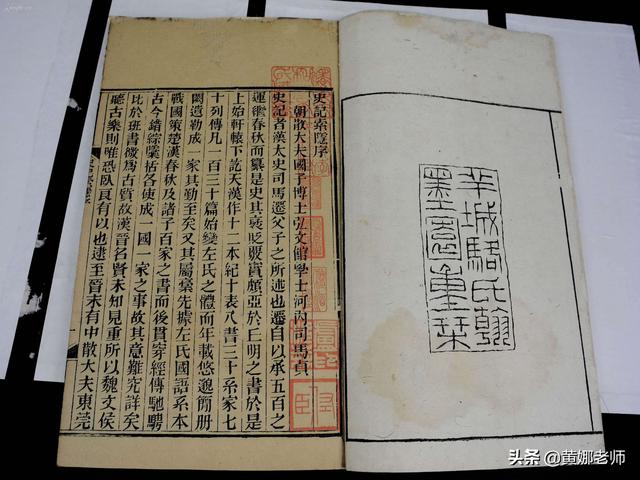 羊城駱氏翰
墨園重栞
史記索隱序
朝散大夫國子博士弘文館學士河內司馬貞
史記者漢太史司馬遷父子之所述也遷自以承五百之
運繼春秋而纂是史其褒貶覈實頗亞於丘明之書於是
上始軒轅下訖天漢作十二本紀十表八書三十系家七
十列傳凡一百三十篇始變左氏之體而年載悠邈簡冊
闕遺勒成一家其勤至矣又其屬稾先據左氏國語系本
戰國策楚漢春秋及諸子百家之書而後貫穿經傳馳騁
古今錯綜櫽括各使成一國一家之事故其意難究詳矣
比於班書微為古質故漢晉名賢未知見重所以魏文侯
聽古樂則唯恐臥良有以也逮至晉末有中散大夫東莞
头条 @黄娜老师